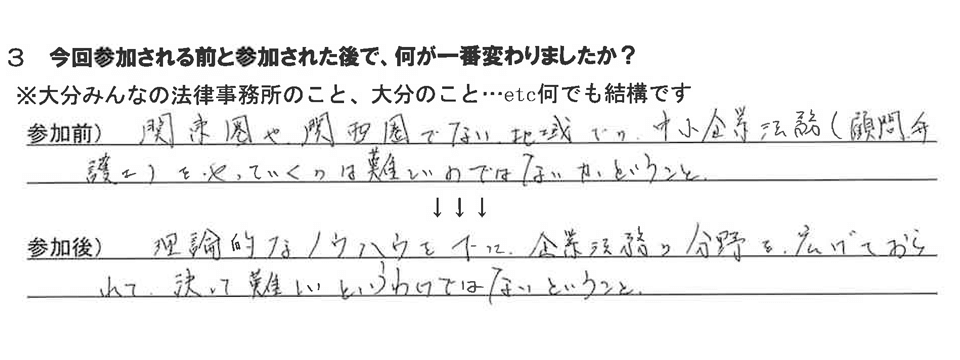 3 今回参加される前と参加された後で、何が一番変わりましたか？
※大分みんなの法律事務所のこと、大分のこと…etc何でも結構です
参加前） 関東圏や関西圏でない地域での中小企業法務（顧問弁
護士）をやっていくのは難しいのではないかということ。
↓↓↓
参加後） 理論的なノウハウを下に、企業法務の分野を広げておら
れて、決して難しいというわけではないということ。